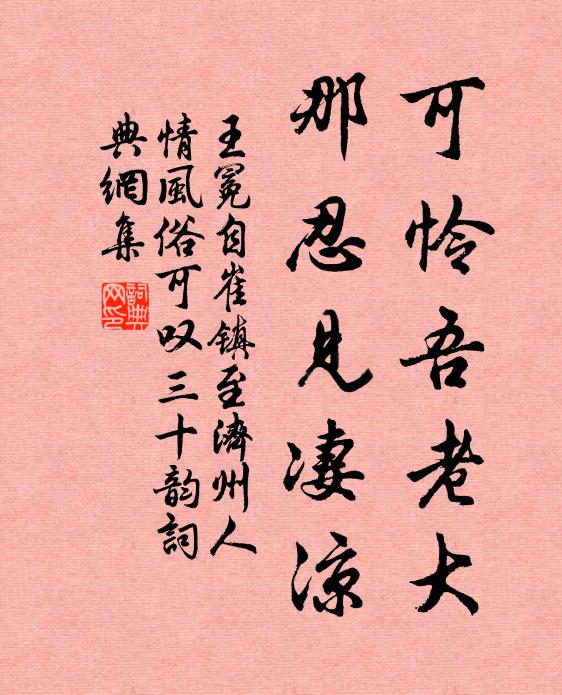 可怜吾老大
那忍见凄凉
王冕自崔镇至濟州人
情風俗可叹三十韵詞
典網集
詞典
网印